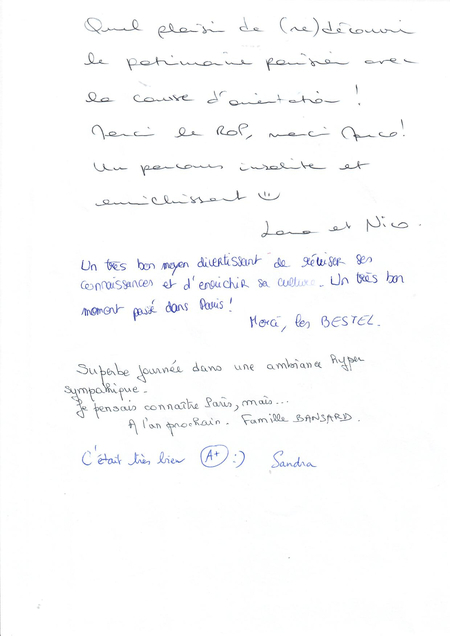 Quel plaisir de (re)découvrir
le patrimoine parisien avec
la course d'orientation !
Merci le RoP, merci !
Un parcours insolite et
enrichissant ☺
et Nico.
Un très bon moyen divertissant de réviser ses
connaissances et d'enrichir sa culture. Un très bon
moment passé dans Paris !
Merci, les BESTEL.
Superbe Journée dans une ambiance hyper
sympathique.
Je pensais connaître Paris, mais...
A l'an prochain. Famille BANSARD.
C'était très bien A+ :) Sandra